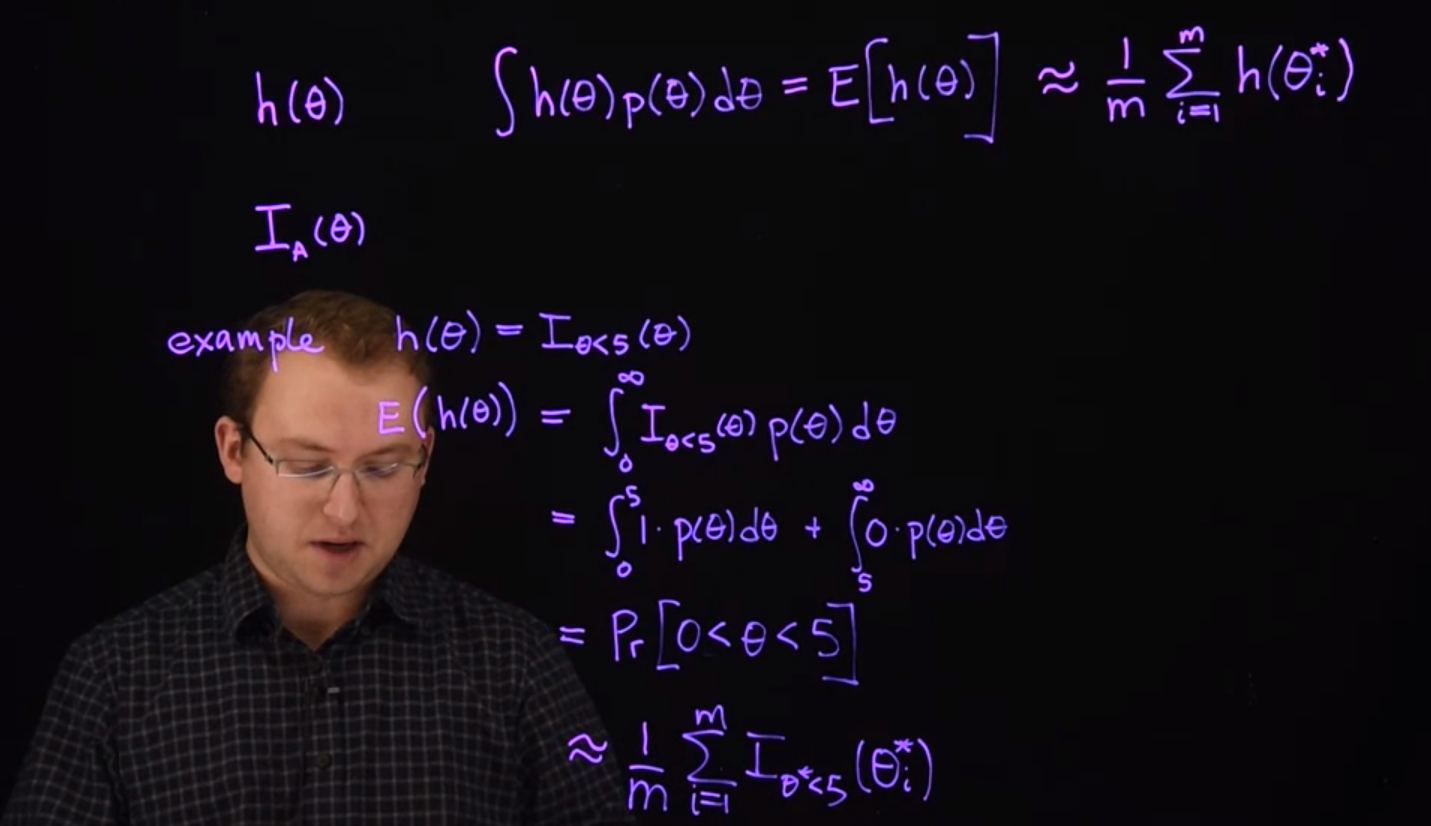 h(θ) ∫h(θ)p(θ)dθ = E[h(θ)] ≈ 1/m ∑_{i=1}^{m} h(θ_i^*)
I_A(θ)
example h(θ) = I_{θ<5}(θ)
E(h(θ)) = ∫_0^∞ I_{θ<5}(θ) p(θ)dθ
= ∫_0^5 1·p(θ)dθ + ∫_5^∞ 0·p(θ)dθ
= Pr[0<θ<5]
≈ 1/m ∑_{i=1}^{m} I_{θ^*<5}(θ_i^*)